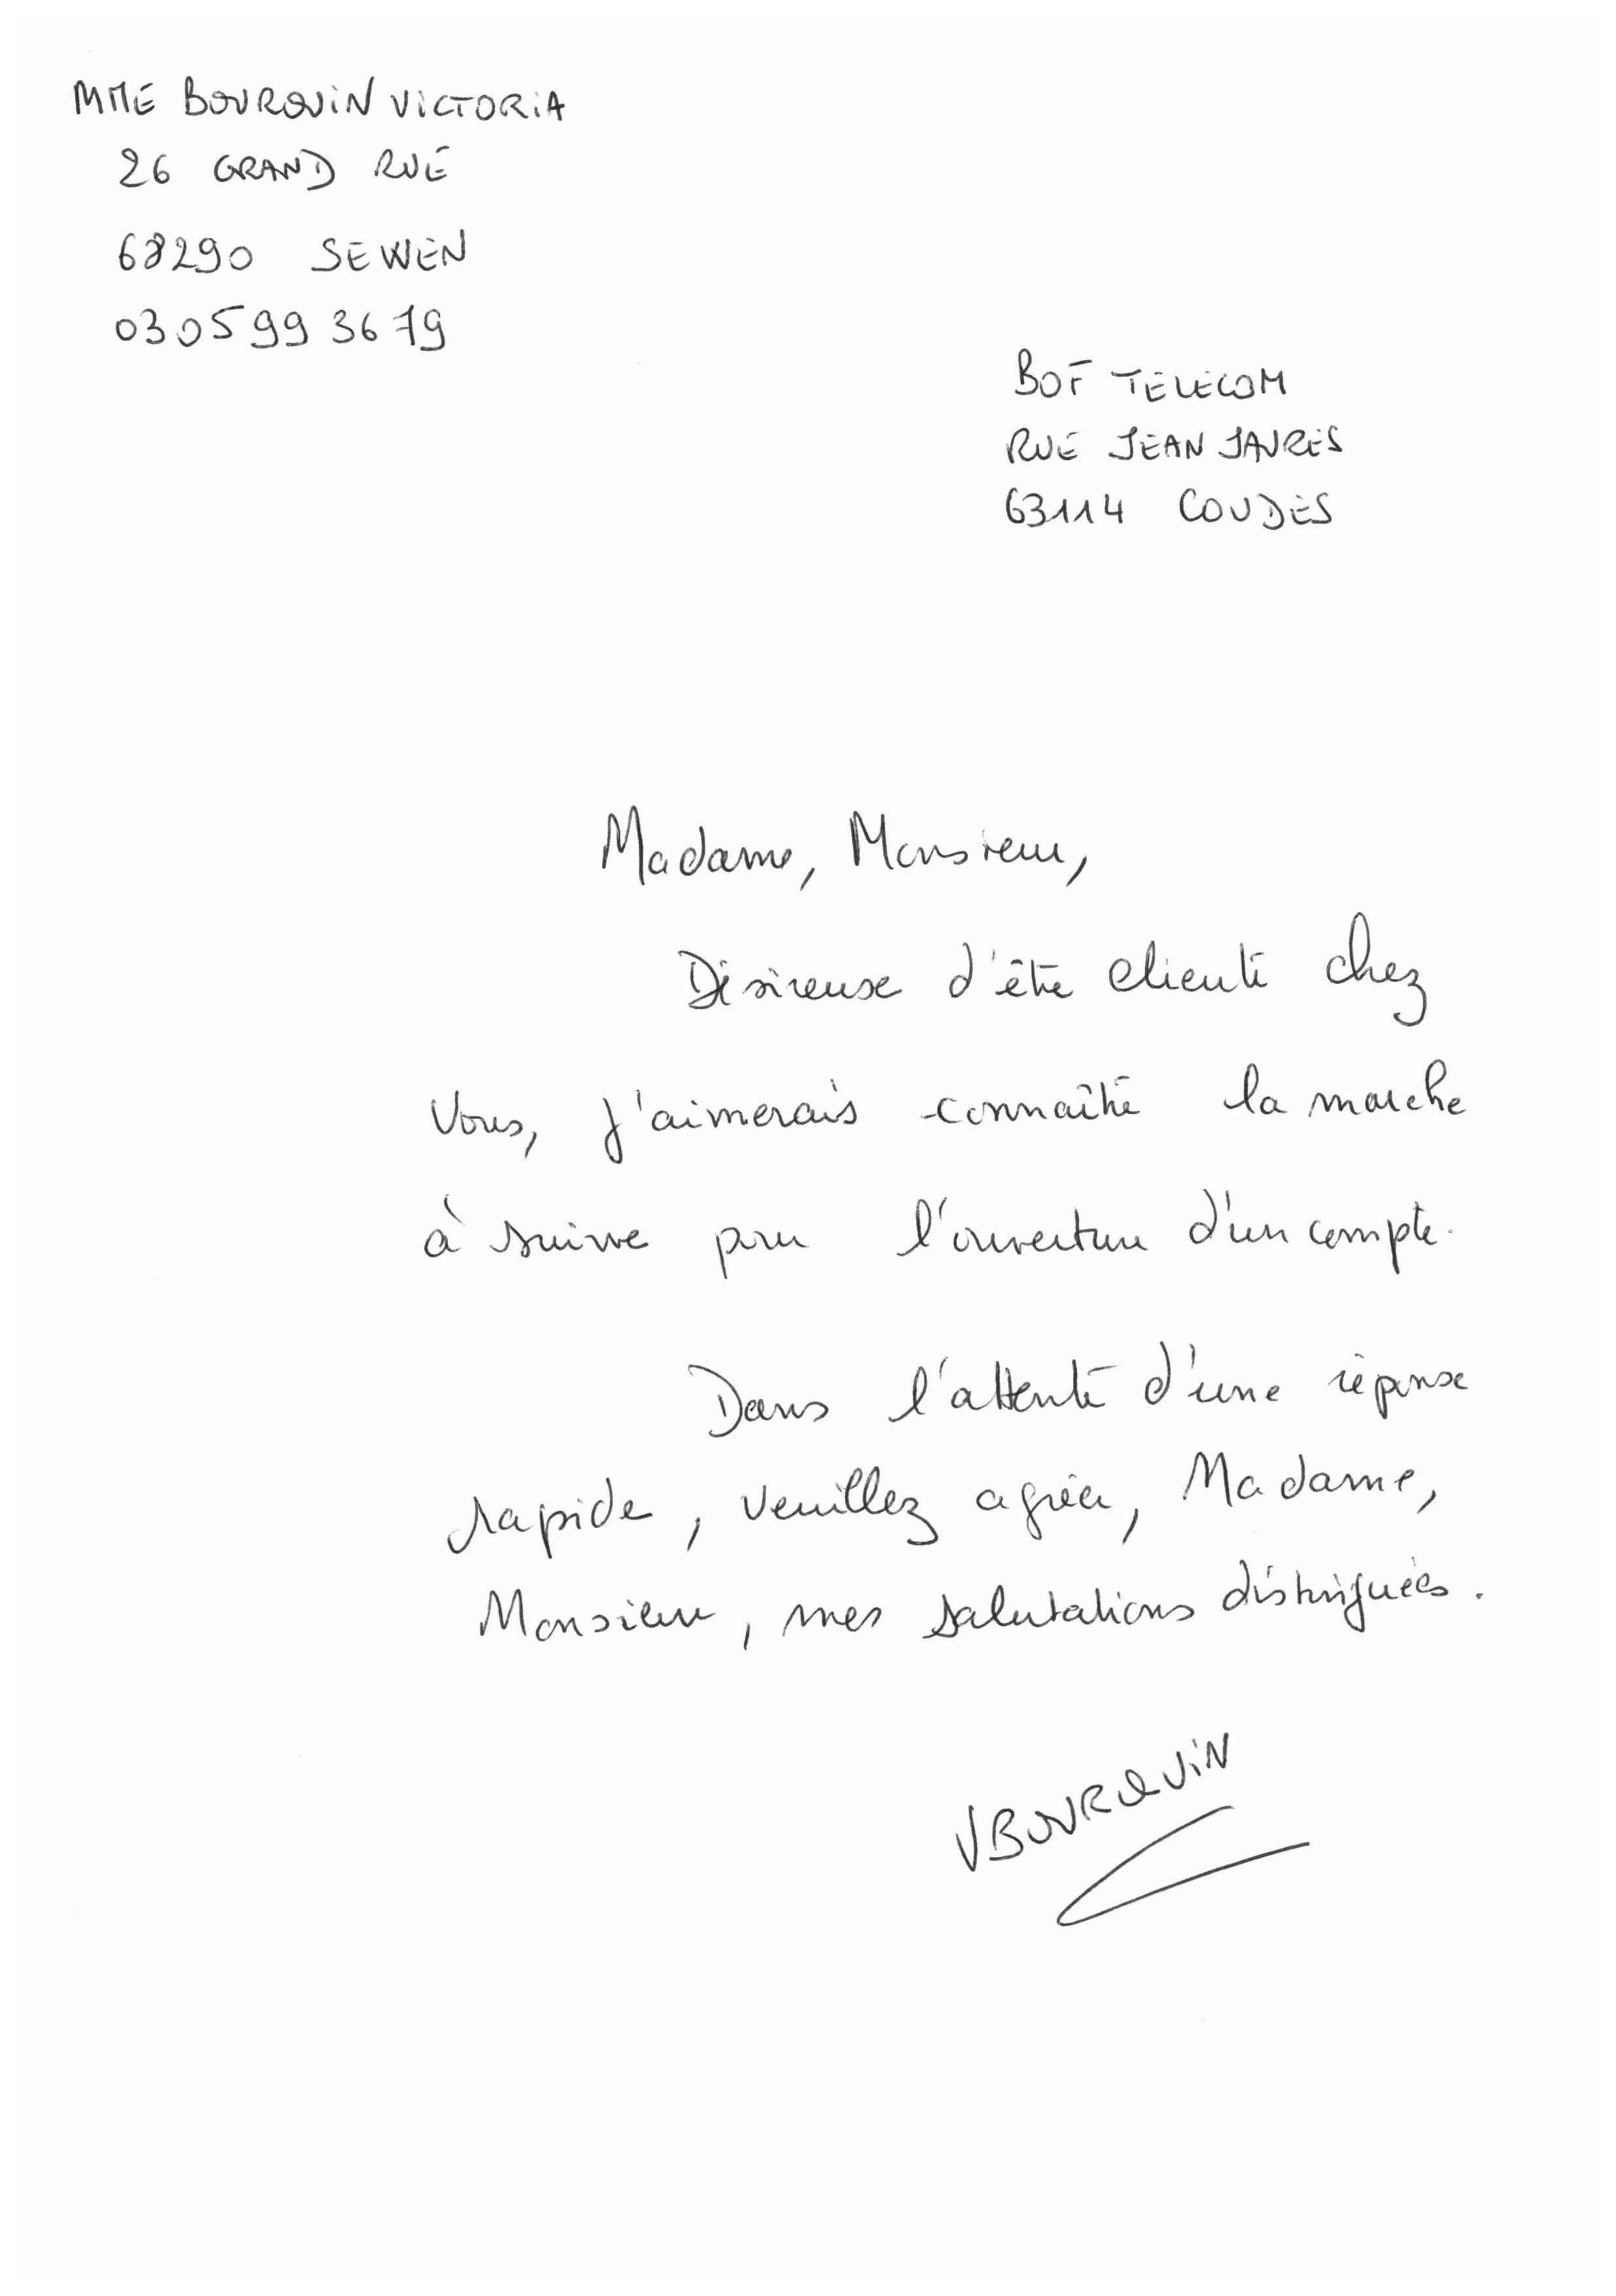 MME BOURQUIN VICTORIA
26 GRAND RUE
68290 SEWEN
03 05 99 36 79
BOF TELECOM
RUE JEAN JAURES
63114 COUDES
Madame, Monsieur,
Désireuse d'être cliente chez
vous, j'aimerais connaître la marche
à suivre pour l'ouverture d'un compte.
Dans l'attente d'une réponse
rapide, veuillez agréer, Madame,
Monsieur, mes salutations distinguées.
V BOURQUIN